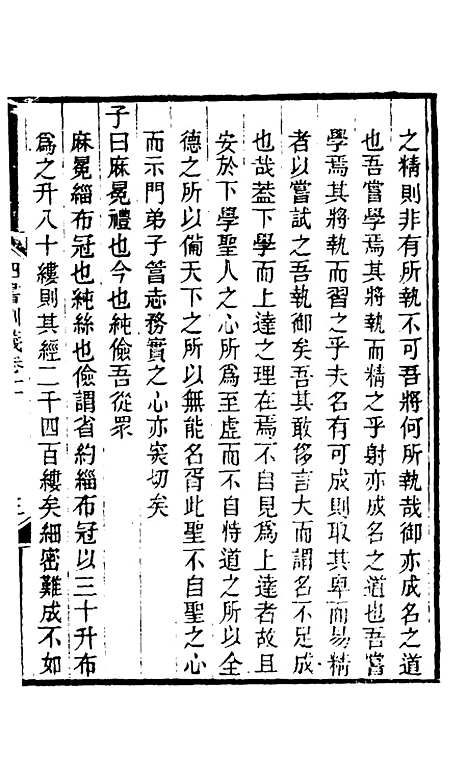 之精則非有所執不可吾將何所執哉御亦成名之道
也吾嘗學焉其將執而精之乎射亦成名之道也吾嘗
學焉其將執而習之乎夫名有可成則取其卑而易精
者以嘗試之吾執御矣吾其敢侈言大而謂名不足成
也哉蓋下學而上達之理在焉不自見爲上達者故且
安於下學聖人之心所爲至虛而不自恃道之所以全
德之所以備天下之所以無能名胥此聖不自聖之心
而示門弟子篤志務實之心亦寅切矣
子曰麻冕禮也今也純儉吾從眾
麻冕緇布冠也純絲也儉謂省約緇布冠以三十升布
爲之升八十縷則其經二千四百縷矣細密難成不如
四書訓義卷十